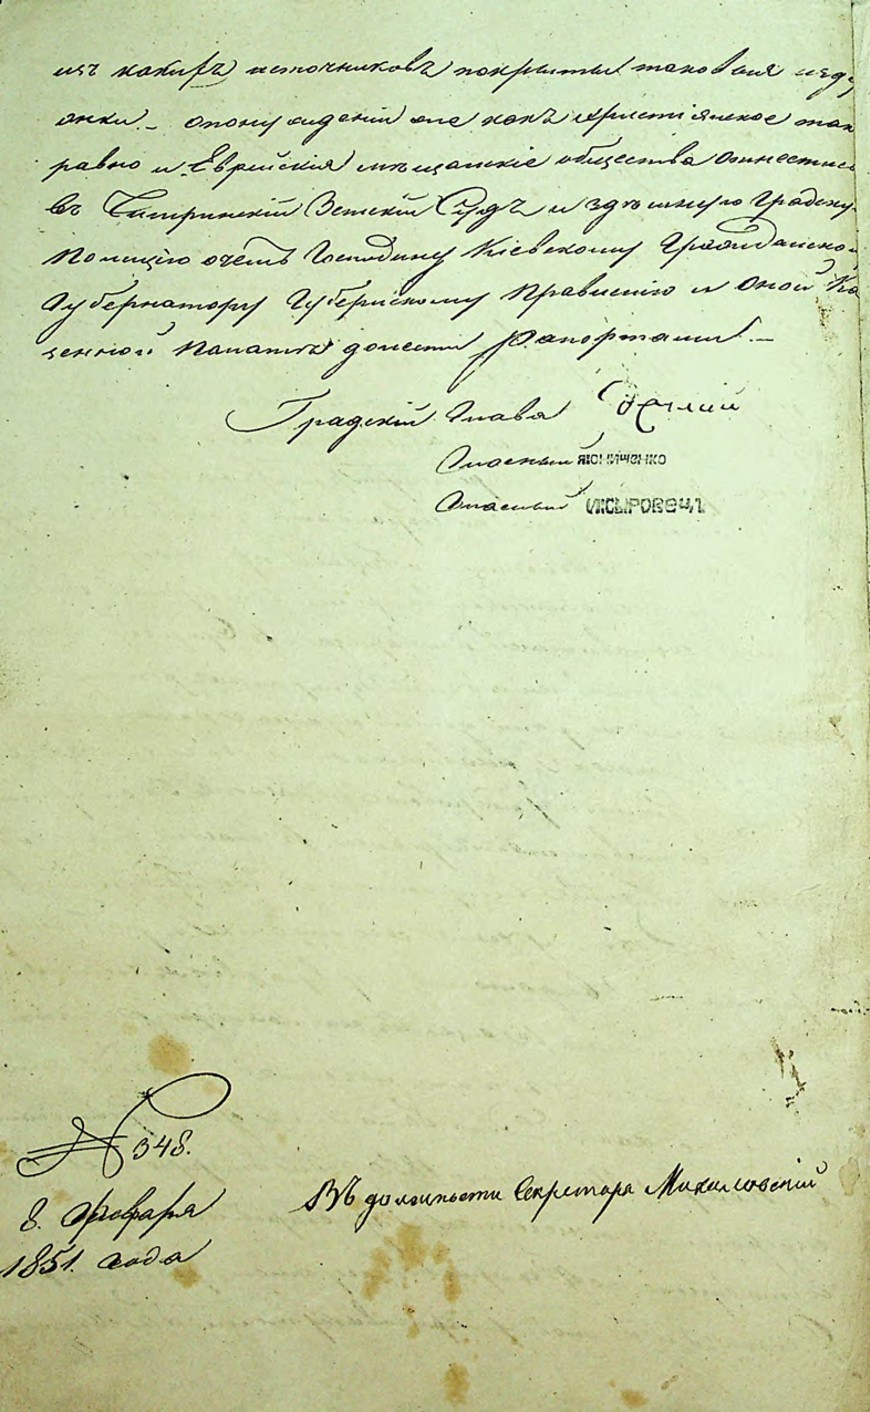 изъ какихъ источниковъ покрыты таковыя недо
имки. – о понуждении же какъ христіянское так
равно и Еврейскія мѣщанскіе общества отнестись
въ Чигринскій Земскій Судъ и здѣшную Градску
Полицію о чемъ Господину Кіевскому Гражданском
Губернатору Губернскому Правленію и оной Ка
зенной Палатѣ донести Рапортами. –
Градскій Глава
Гласный ЯКНИЧЕНКО
Гласный
N 348.
8. февраля
1851. года
Въ должности Секретаря Михиловскій